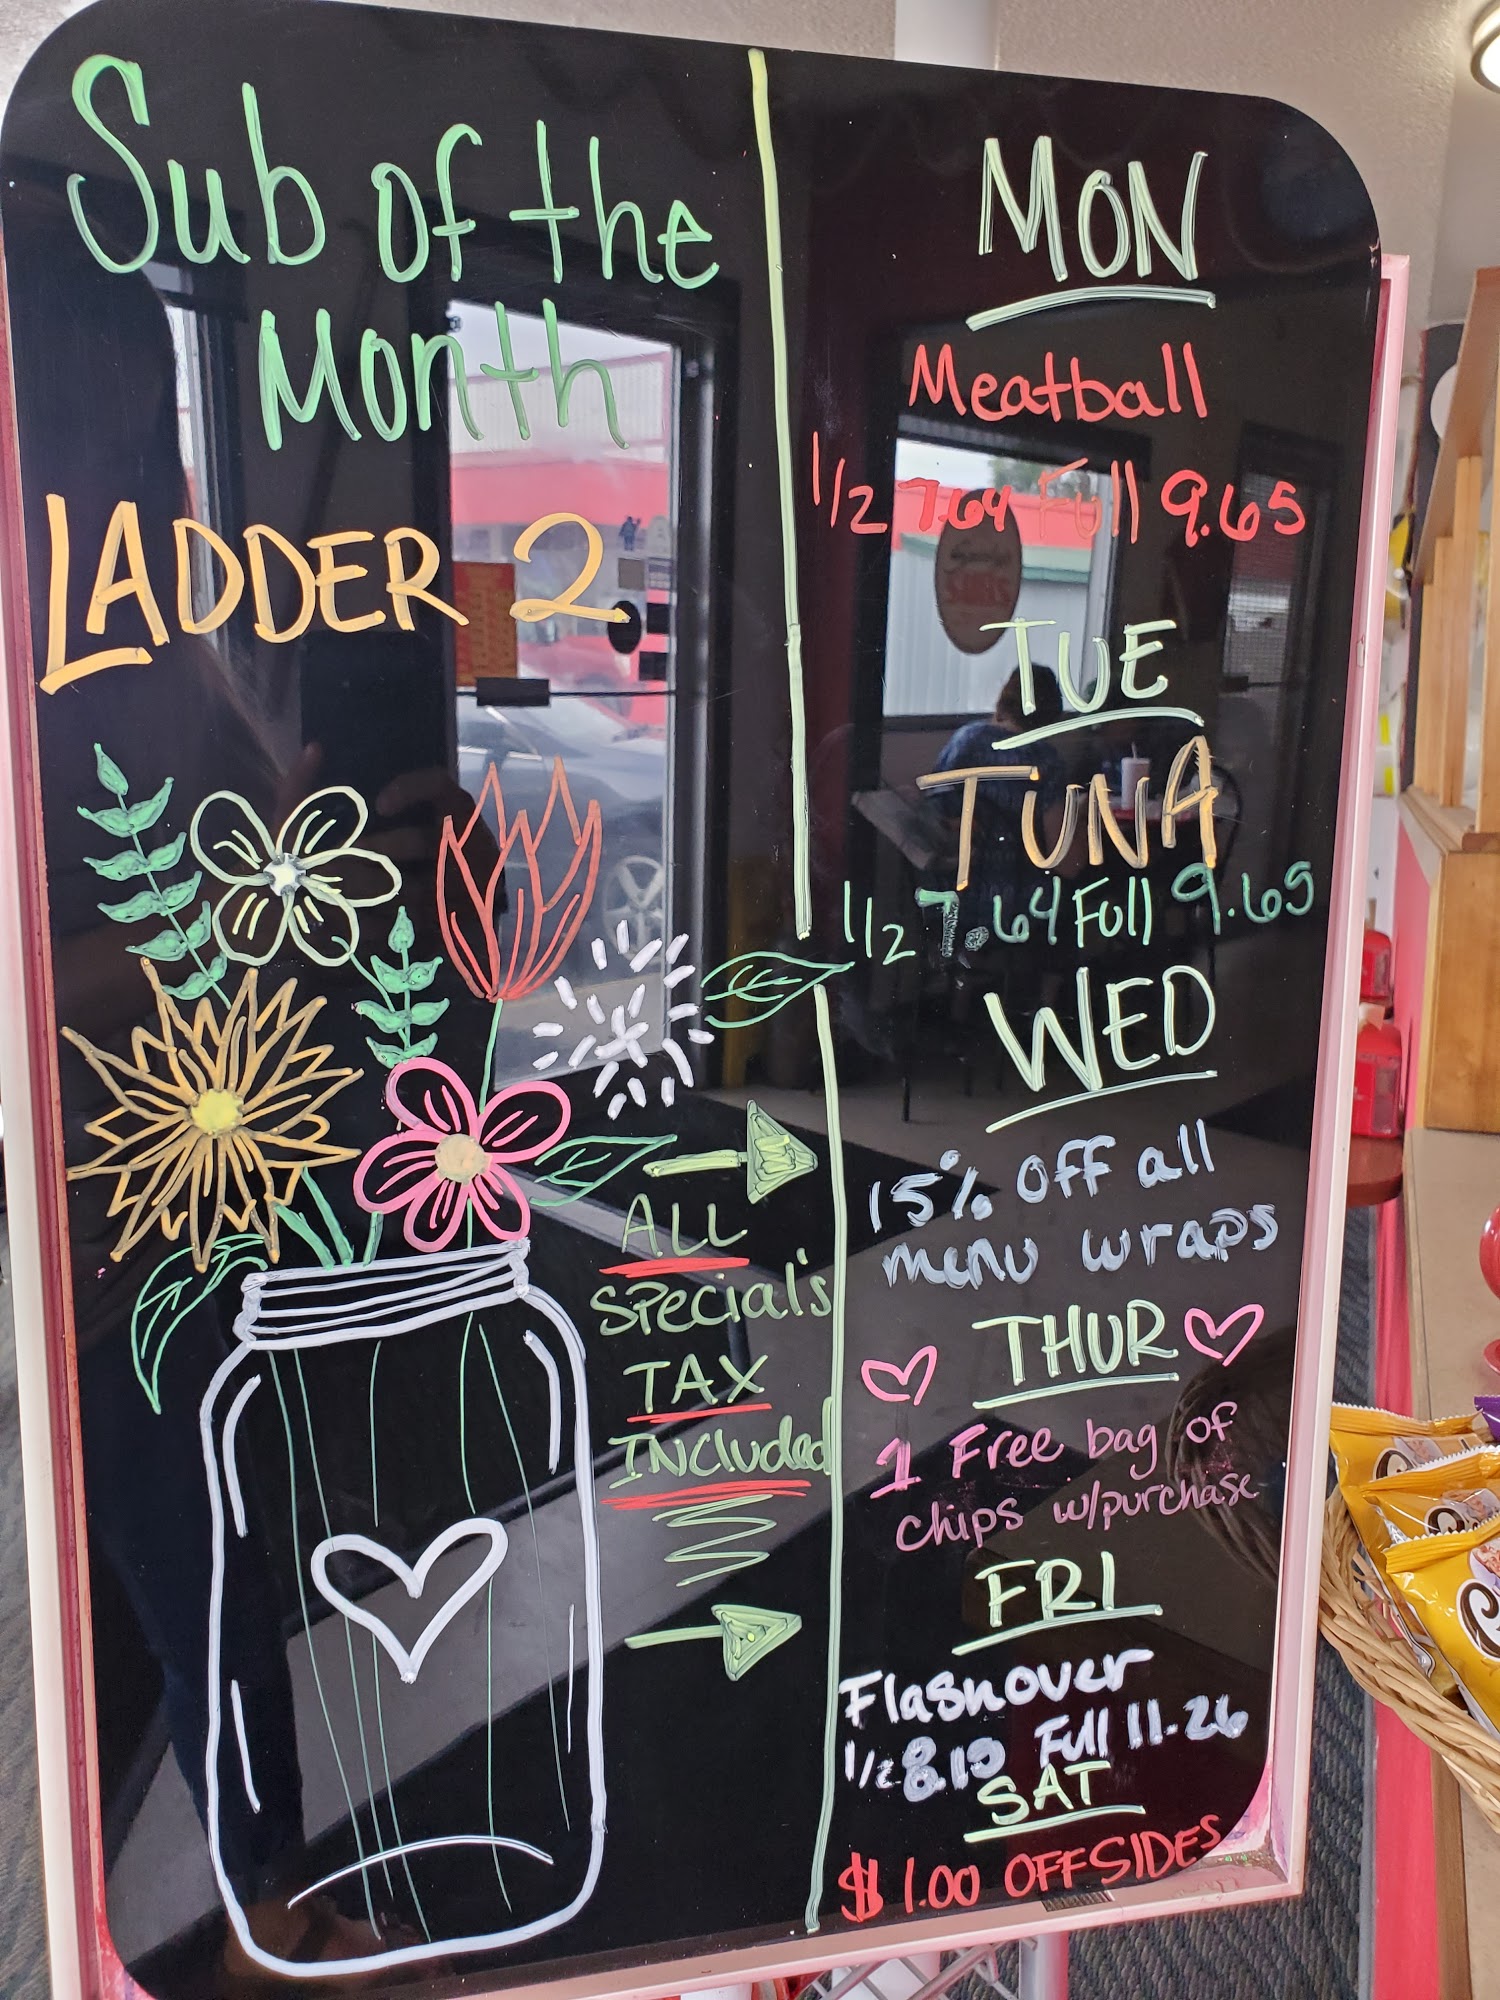 Sub of the
Month
LADDER 2
ALL
Special's
TAX
INCluded
MON
Meatball
1/2 7.64 Full 9.65
TUE
TUNA
1/2 7.64 Full 9.65
WED
15% off all
menu wraps
THUR
1 Free bag of
chips w/purchase
FRI
Flashover
1/2 8.10 Full 11.26
SAT
$1.00 OFF SIDES